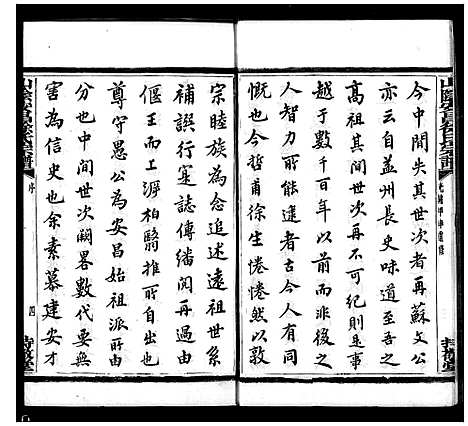 今中間失其世次者再蘇文公
亦云自益州長史味道至吾之
高祖其間世次再不可紀則事
越于數千百年以前而非後之
人智力所能達者古今人有同
慨也今敦甫徐生惓惓然以敦
宗睦族為念追述遠祖世系
補誤行塋誌傳繙閱再過由
偃王而上溯柏翳推所自出也
尊守愚公為安昌始祖派所由
分也中間世次闕畧數代要無
害為信史也余素慕建安才
山陰安昌徐氏宗譜
序
四
光緒甲申重修